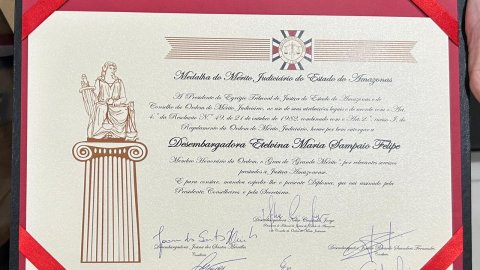 Medalha do Mérito Judiciário do Estado do Amazonas
A Presidente do Egrégio Tribunal de Justiça do Estado do Amazonas e do
Conselho da Ordem do Mérito Judiciário, no uso de suas atribuições legais e de acordo com o Art.
4.º da Resolução N.º 49, de 21 de outubro de 1982, combinado com o Art. 2.º inciso I, do
Regulamento da Ordem do Mérito Judiciário, houve por bem outorgar a
Desembargadora Etelvina Maria Sampaio Felipe
Membro Honorário da Ordem, o Grau de "Grande Mérito", por relevantes serviços
prestados à Justiça Amazonense.
E para constar, mandou expedir-lhe o presente Diploma, que vai assinado pela
Presidente, Conselheiros e pela Secretária.
Desembargadora
Jorge
Desembargadora Joana dos Santos Meirelles
Desembargador
Fernandes